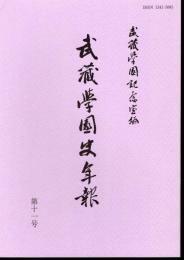 ISSN 1341-5905
武蔵学園記念室編
武蔵学園史年報
第十一号